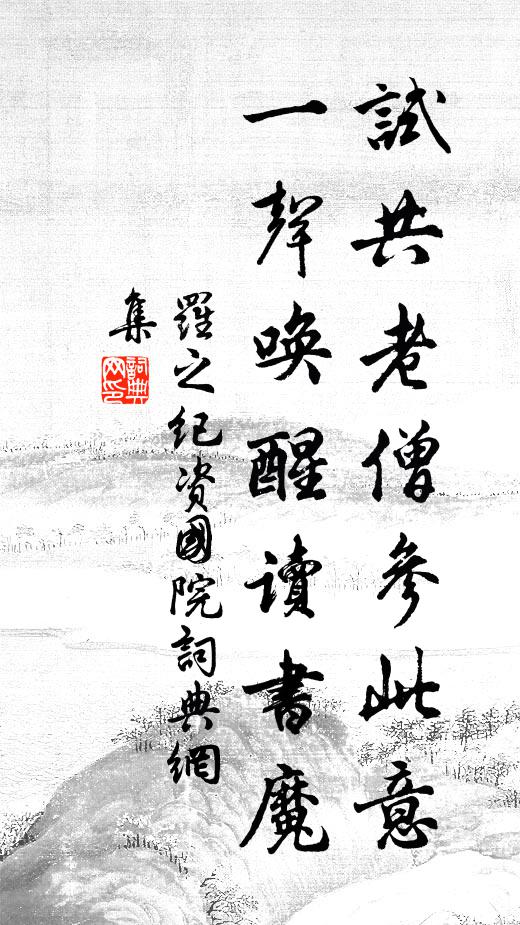 試共老僧參此意
一聲喚醒讀書魔
羅之紀資國院詞典網
集
詞典網印